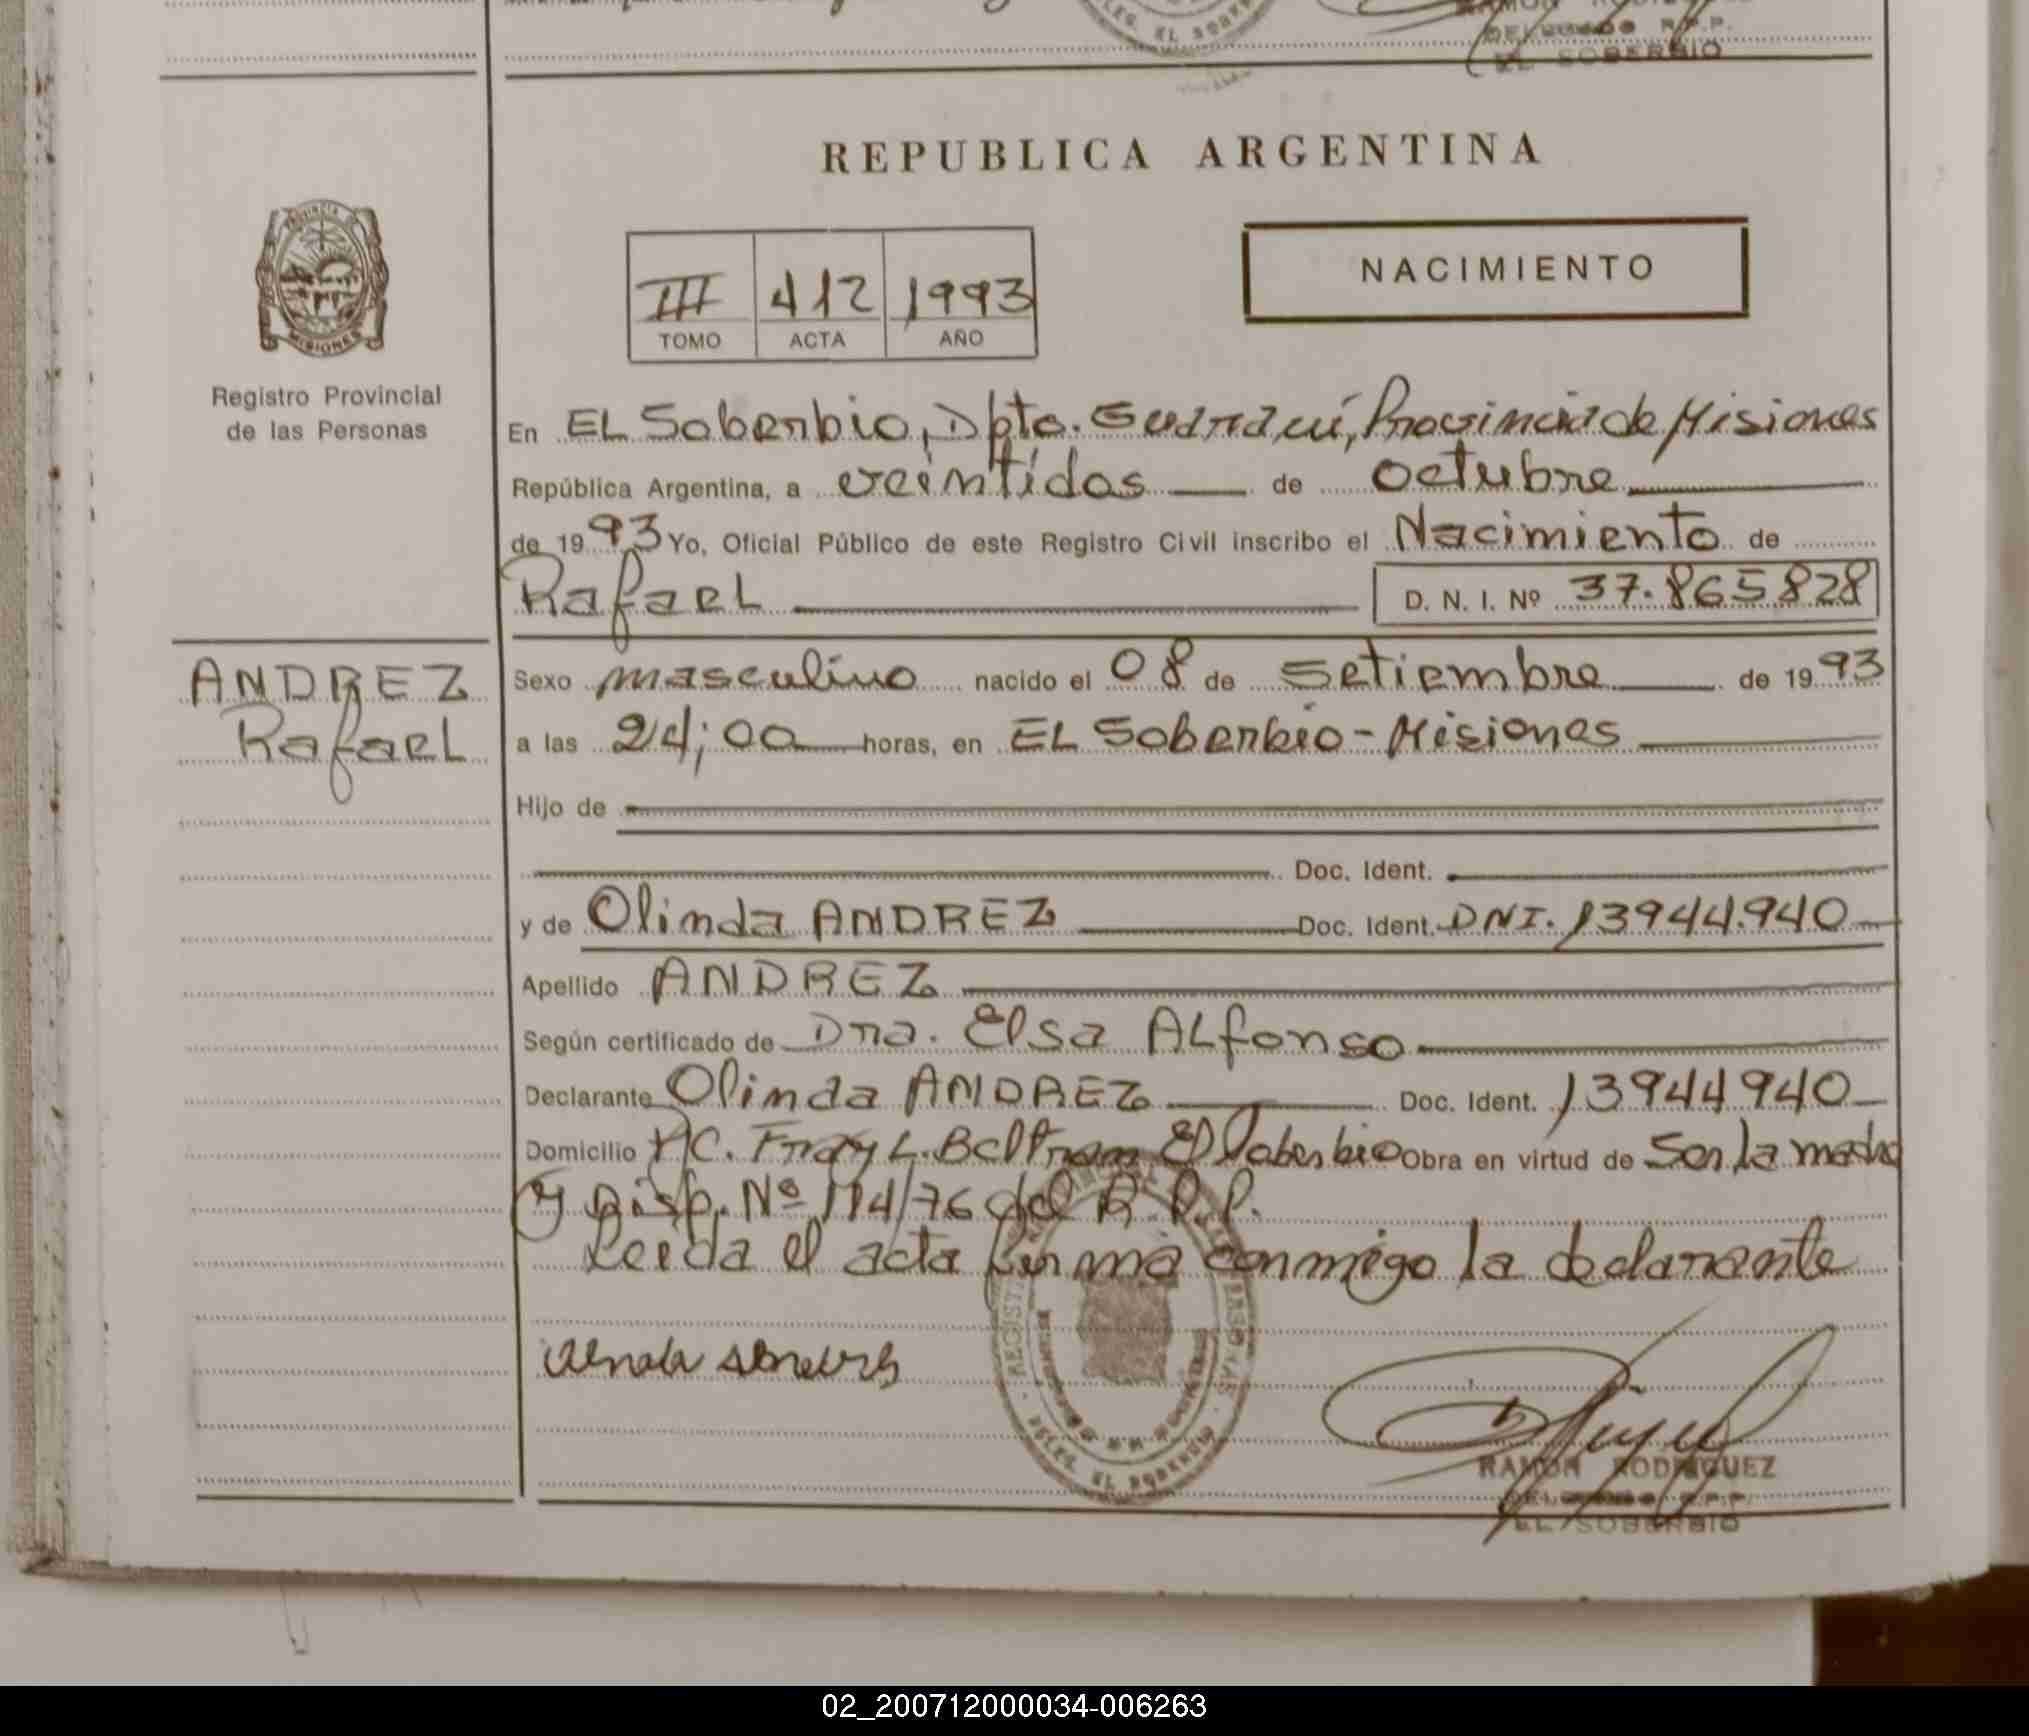 EL SOBERBIO
REPUBLICA ARGENTINA
PROVINCIA DE
MISIONES
III 412 1993
TOMO ACTA AÑO
NACIMIENTO
Registro Provincial
de las Personas
En EL Soberbio, Dpto. Guaraní, Provincia de Misiones
República Argentina, a veintidos de octubre
de 1993 Yo, Oficial Público de este Registro Civil inscribo el Nacimiento de
Rafael D. N. I. Nº 37.865828
ANDREZ
Rafael
Sexo masculino nacido el 08 de Setiembre de 1993
a las 24;00 horas, en EL Soberbio - Misiones
Hijo de
Doc. Ident.
y de Olinda ANDREZ Doc. Ident. DNI. 13944.940
Apellido ANDREZ
Según certificado de Dra. Elsa Alfonso
Declarante Olinda ANDREZ Doc. Ident. 13944940
Domicilio Fray L. Beltram El Soberbio Obra en virtud de Ser la madre
y Disp. Nº 114/76 del R.P.P.
Leida el acta firma conmigo la declarante
DELEG. EL SOBERBIO
RAMON RODRIGUEZ
DELEGADO R.P.P.
EL SOBERBIO
02_200712000034-006263